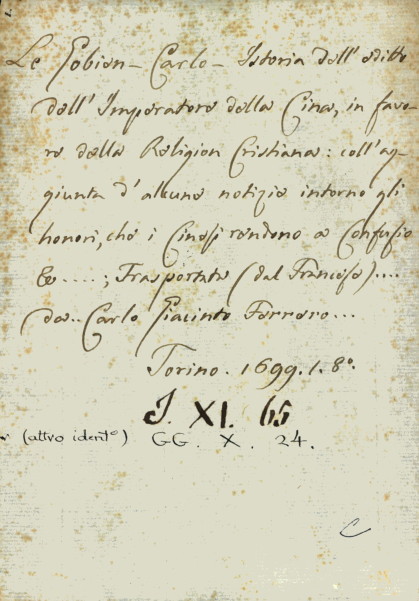 Le Gobien - Carlo - Istoria dell' editto
dell' Imperatore della Cina, in favo-
re della Religion Cristiana: coll' ag-
giunta d' alcune notizie intorno gli
honori, che i Cinesi rendono a Confusio
&c ....; Trasportata (dal Francese)....
da.. Carlo Giacinto Ferrero...
Torino. 1699. 1. 8º.
J. XI. 65
(altro identº) GG. X. 24.
C